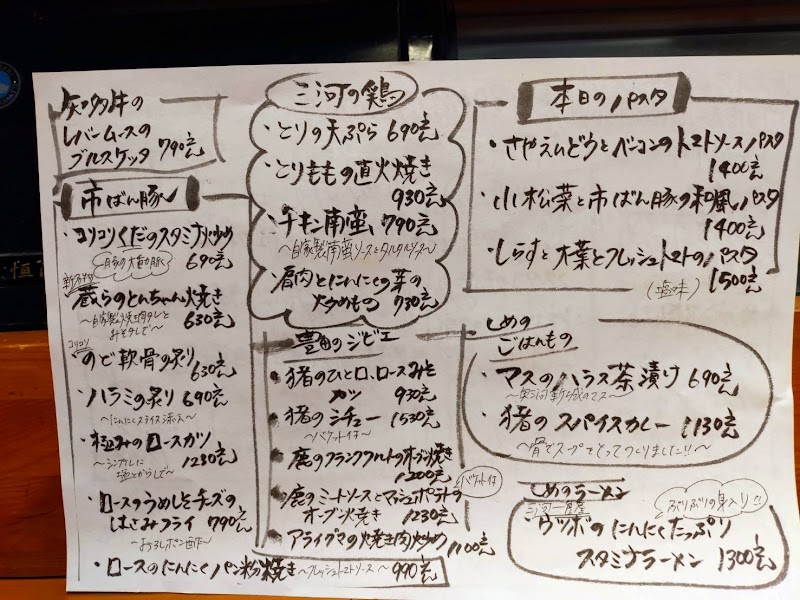 知多牛の
レバームースの
ブルスケッタ 790えん
市ばん豚
・コリコリくだのスタミナ炒め
〜豚の大動脈〜
690えん
蔵らのとんちゃん焼き
〜自家製焼肉タレと
おモヤしで〜
630えん
コリコリ
・のど軟骨の炙り
630えん
・ハラミの炙り 690えん
〜にんにくスライス添え〜
・極みのロースカツ
〜シンプルに
塩とからしで〜
1230えん
・ロースのうめしそチーズの
はさみフライ 790えん
〜おろしポン酢〜
・ロースのにんにくパン粉焼き 〜フレッシュトマトソース〜 990えん
三河の鶏
・とりの天ぷら 690えん
・とりももの直火焼き
930えん
・チキン南蛮 790えん
〜自家製南蛮ソースとタルタルソース〜
・肩肉とにんにくの芽の
炒めもの 730えん
豊田のジビエ
・猪のひと口、ロースみそ
カツ 930えん
・猪のシチュー 1530えん
〜バケット付〜
・鹿のフランクフルトのオーブン焼き
1200えん
・鹿のミートソースとマッシュポテトの
オーブン焼き 1230えん
バケット付
・アライグマの焼き肉炒め
1100えん
本日のパスタ
・さやえんどうとベーコンのトマトソースパスタ
1400えん
・小松菜と市ばん豚の和風パスタ
1400えん
・しらすと大葉とフレッシュトマトのパスタ
(塩味) 1500えん
しめの
ごはんもの
・マスのハラス茶漬け 690えん
〜奥三河新城のマス〜
・猪のスパイスカレー 1130えん
〜骨でスープをとってつくりました!!〜
しめのラーメン
ぷりぷりの身入り!!
・ウツボのにんにくたっぷり
スタミナラーメン 1300えん